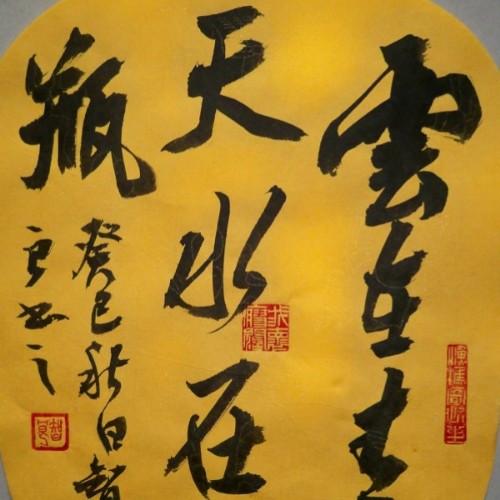 雲在青
天水在
瓶
癸巳秋日智
良书之